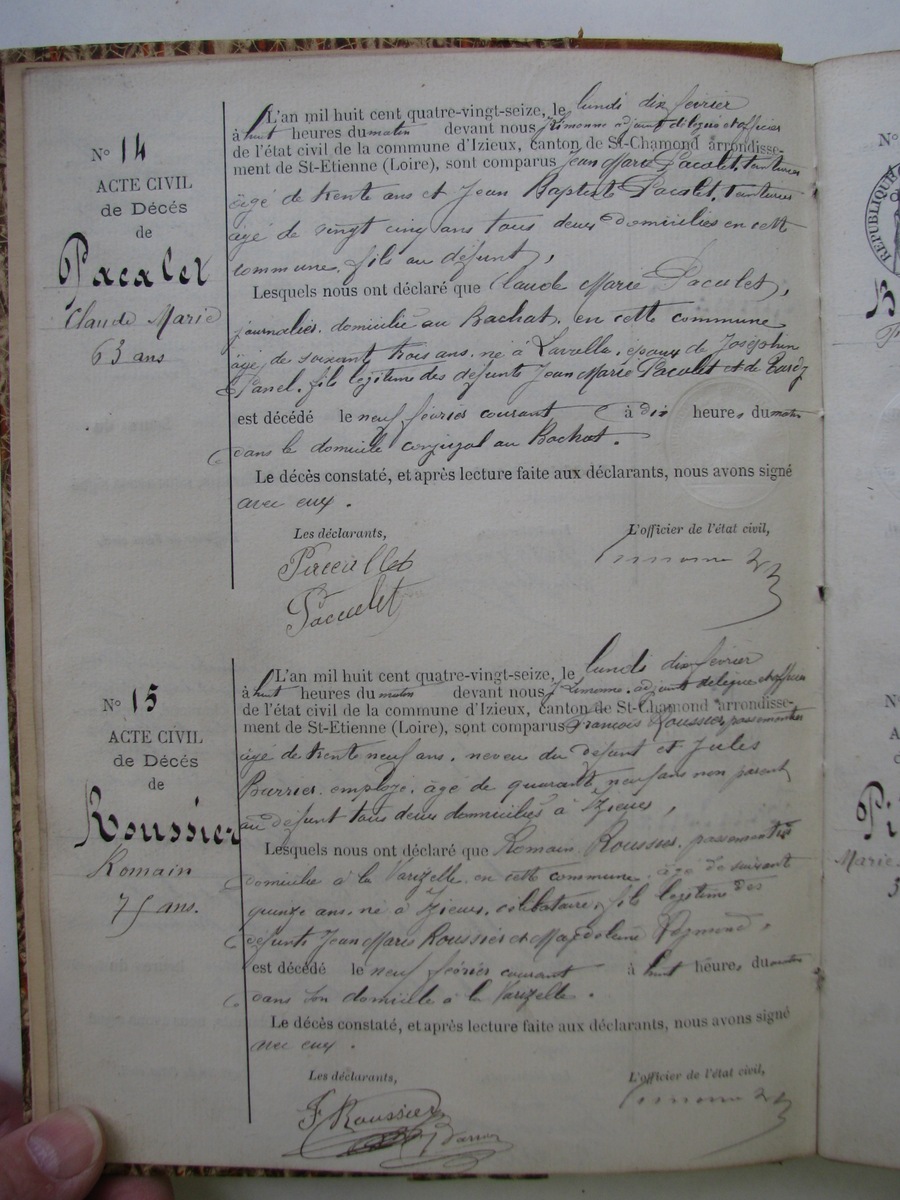 N° 14
ACTE CIVIL
de Décés
de
Pacalet
Claude Marie
63 ans
L'an mil huit cent quatre-vingt-seize, le lundi dix fevrier
à huit heures du matin devant nous Limonne adjoint délégué et officier
de l'état civil de la commune d'Izieux, canton de St-Chamond arrondisse-
ment de St-Etienne (Loire), sont comparus Jean Marie Pacalet, teinturier
âgé de trente ans et Jean Baptiste Pacalet, teinturier
âgé de vingt cinq ans tous deux domiciliés en cette
commune, fils au défunt,
Lesquels nous ont déclaré que Claude Marie Pacalet,
journalier, domicilié au Bachat, en cette commune
âgé de soixante trois ans, né à Lavalla, époux de Joséphine
Panel, fils légitime des défunts Jean Marie Pacalet et de Tardy
est décédé le neuf février courant à dix heures du matin
dans le domicile conjugal au Bachat.
Le décès constaté, et après lecture faite aux déclarants, nous avons signé
avec eux.
Les déclarants,
L'officier de l'état civil,
Pacallet
Limonne
Pacalet
N° 15
ACTE CIVIL
de Décés
de
Roussier
Romain
75 ans.
L'an mil huit cent quatre-vingt-seize, le lundi dix fevrier
à huit heures du matin devant nous Limonne, adjoint délégué et officier
de l'état civil de la commune d'Izieux, canton de St-Chamond arrondisse-
ment de St-Etienne (Loire), sont comparus Francois Roussier, passementier
âgé de trente neuf ans, neveu du défunt et Jules
Burrier, employé, âgé de quarante neuf ans non parent
au défunt tous deux domiciliés à Izieux,
Lesquels nous ont déclaré que Romain Roussier, passementier
domicilié à la Varizelle, en cette commune, âgé de soixante
quinze ans, né à Izieux, célibataire, fils légitime des
défunts Jean Marie Roussier et Magdeleine Raymond,
est décédé le neuf février courant à huit heures du matin
dans son domicile à la Varizelle.
Le décès constaté, et après lecture faite aux déclarants, nous avons signé
avec eux.
Les déclarants,
L'officier de l'état civil,
F Roussier
Limonne
N°
REPUBLIQUE
N°
Marie